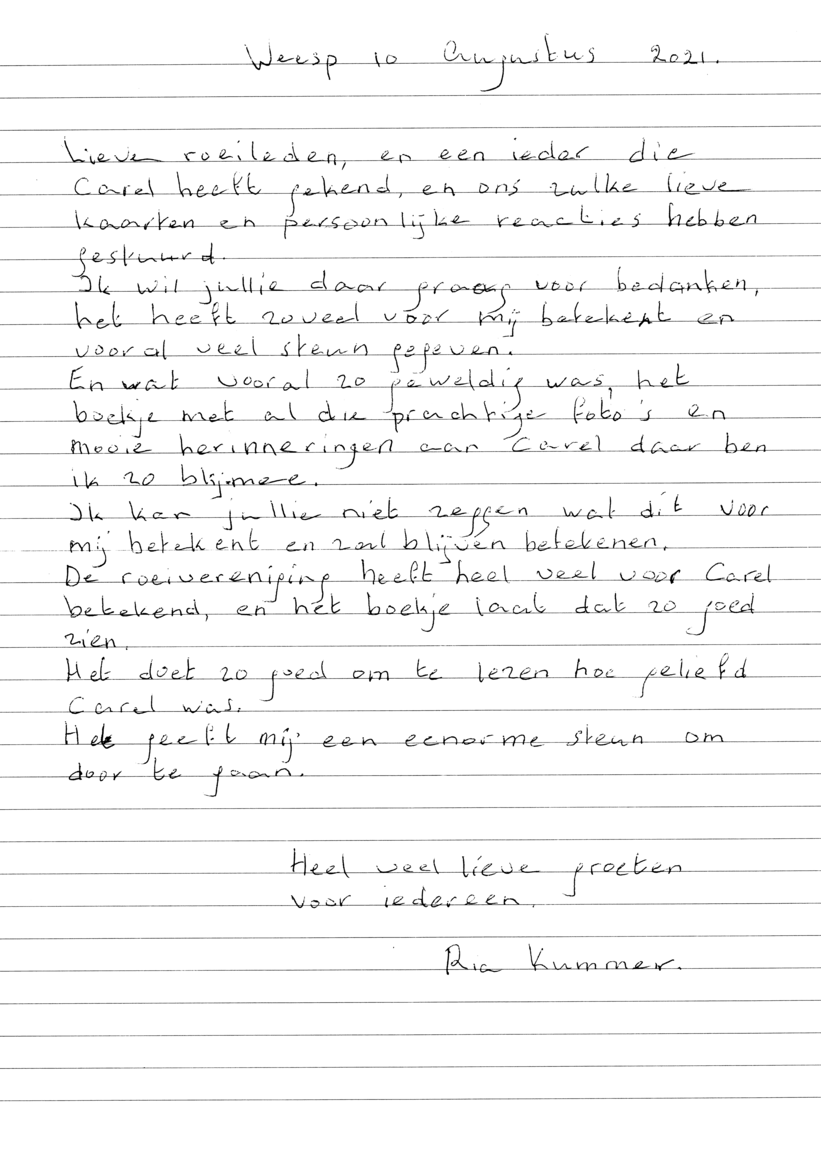 Weesp 10 Augustus 2021.
Lieve roeileden, en een ieder die
Carel heeft gekend, en ons zulke lieve
kaarten en persoonlijke reacties hebben
gestuurd.
Ik wil jullie daar graag voor bedanken,
het heeft zoveel voor mij betekent en
vooral veel steun gegeven.
En wat vooral zo geweldig was, het
boekje met al die prachtige foto's en
mooie herinneringen aan Carel daar ben
ik zo blij mee.
Ik kan jullie niet zeggen wat dit voor
mij betekent en zal blijven betekenen.
De roeivereniging heeft heel veel voor Carel
betekend, en het boekje laat dat zo goed
zien.
Het doet zo goed om te lezen hoe geliefd
Carel was.
Het geeft mij een eenorme steun om
door te gaan.
Heel veel lieve groeten
voor iedereen.
Ria Kummer.